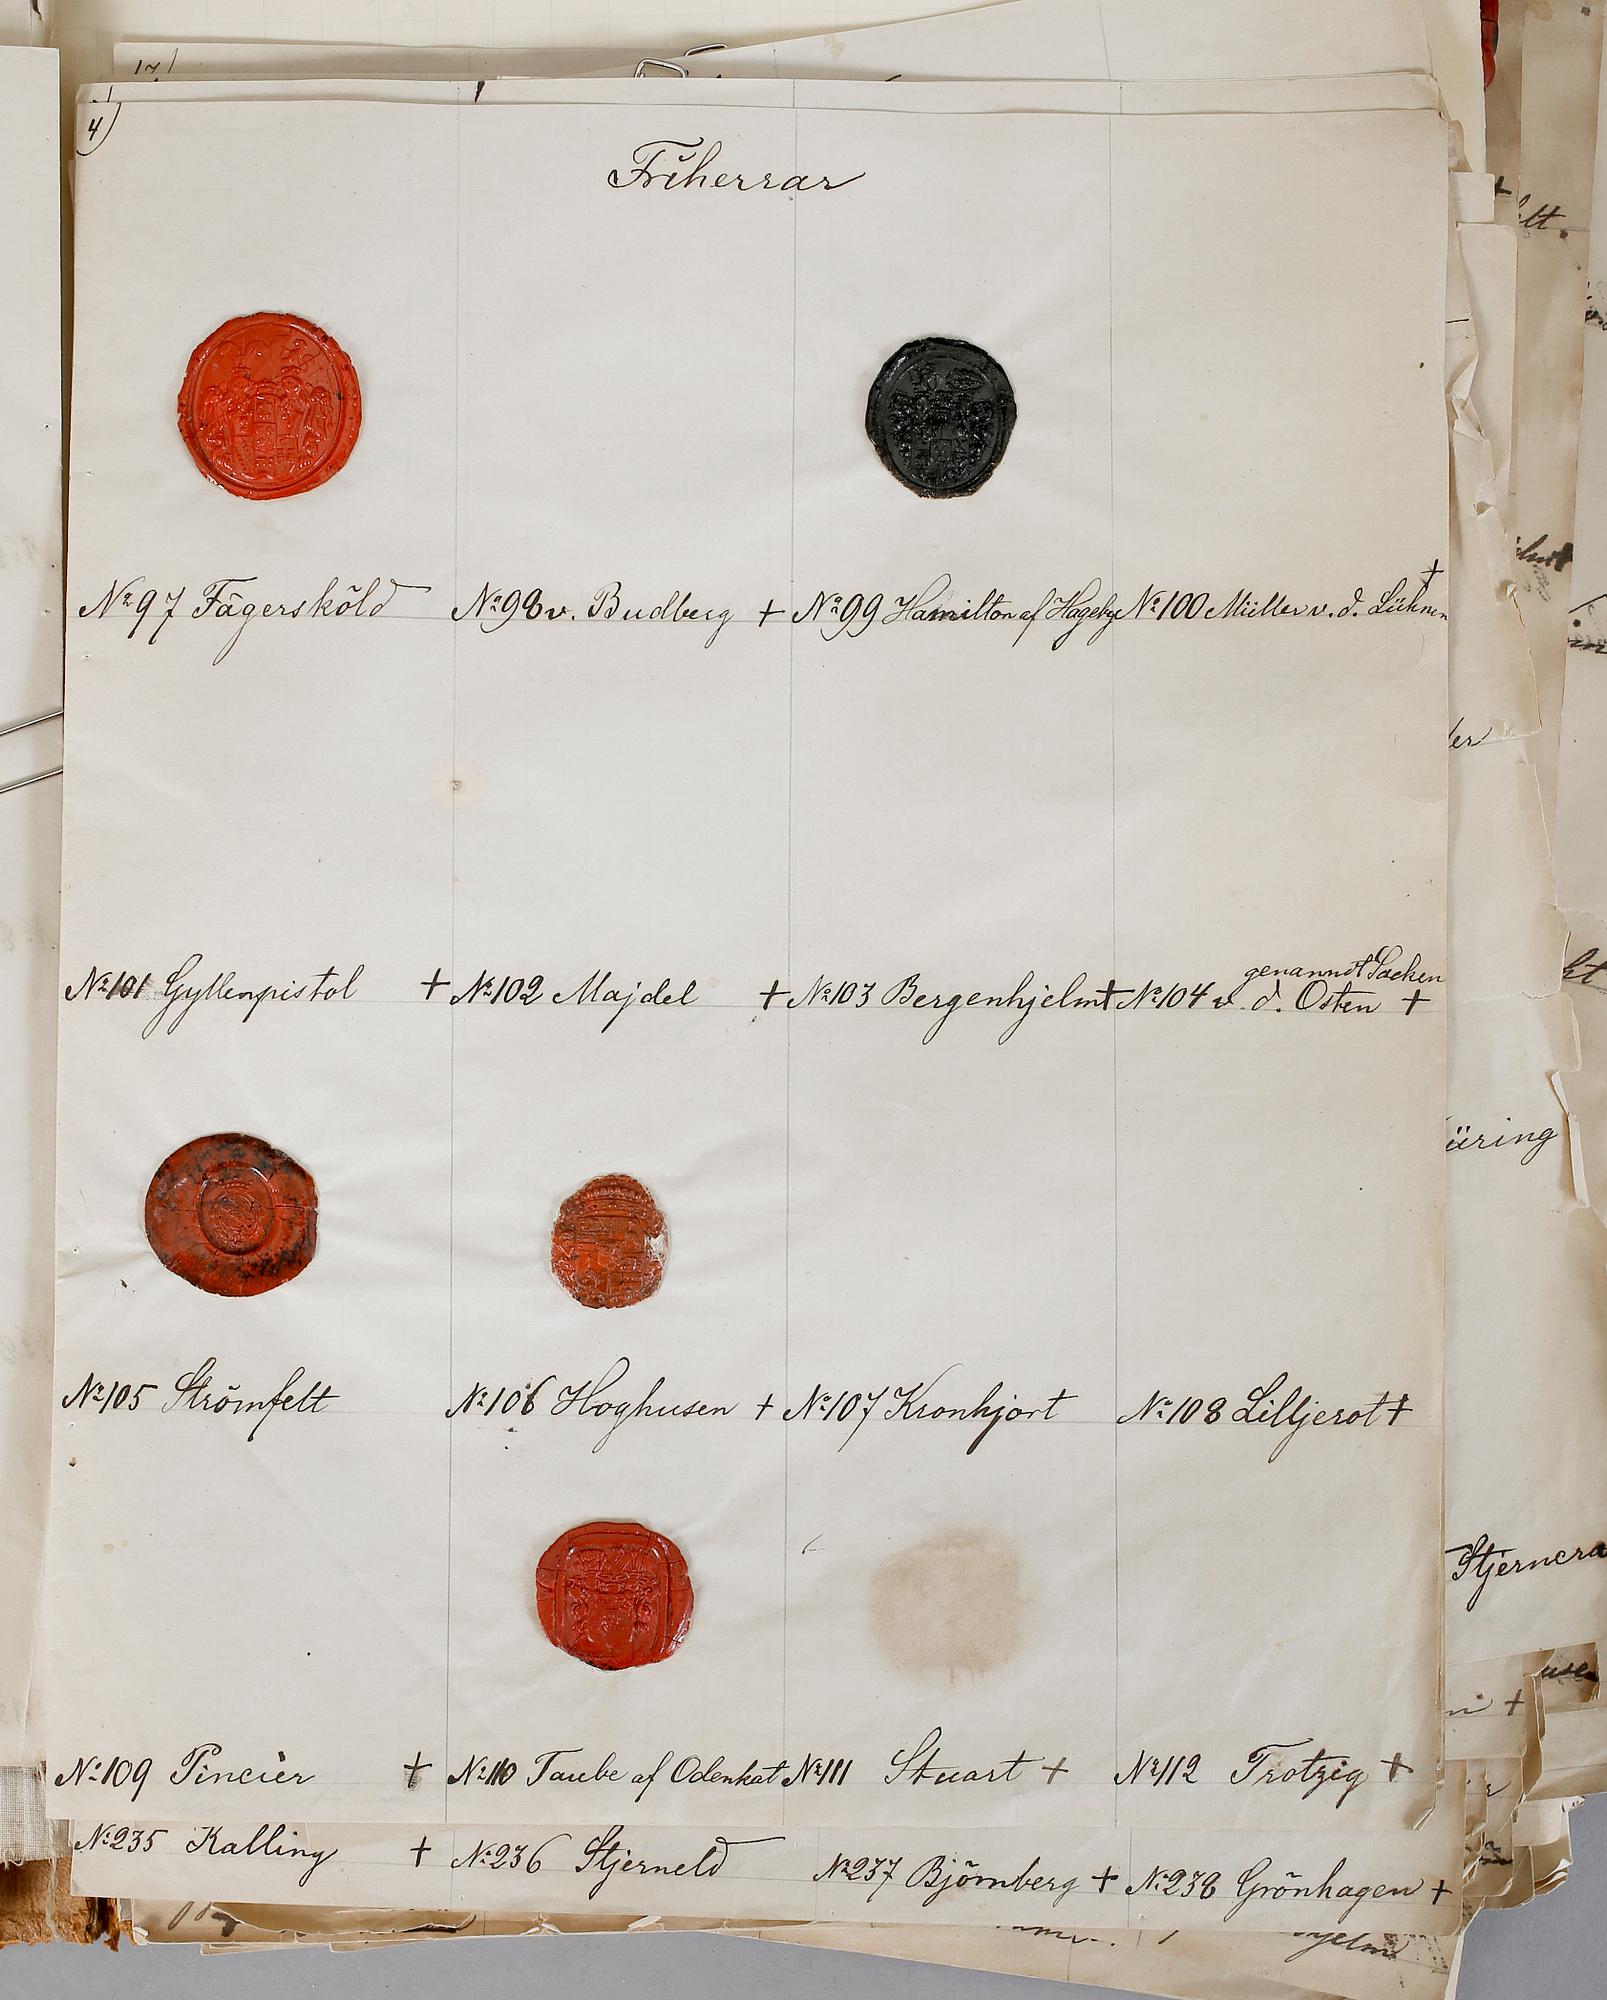 4)
Friherrar
No 97 Fägersköld
No 98 v. Budberg +
No 99 Hamilton af Hageby
No 100 Müller v. d. Lühnen +
No 101 Gyllenpistol +
No 102 Majdel +
No 103 Bergenhjelm +
No 104 v. d. Osten genanndt Sacken +
No 105 Strömfelt
No 106 Hoghusen +
No 107 Kronhjort
No 108 Lilljerot +
No 109 Pincier +
No 110 Taube af Odenkat
No 111 Stuart +
No 112 Trotzig +
No 235 Kalling +
No 236 Stjerneld
No 237 Björnberg +
No 238 Grönhagen +
üring
Stjerncra